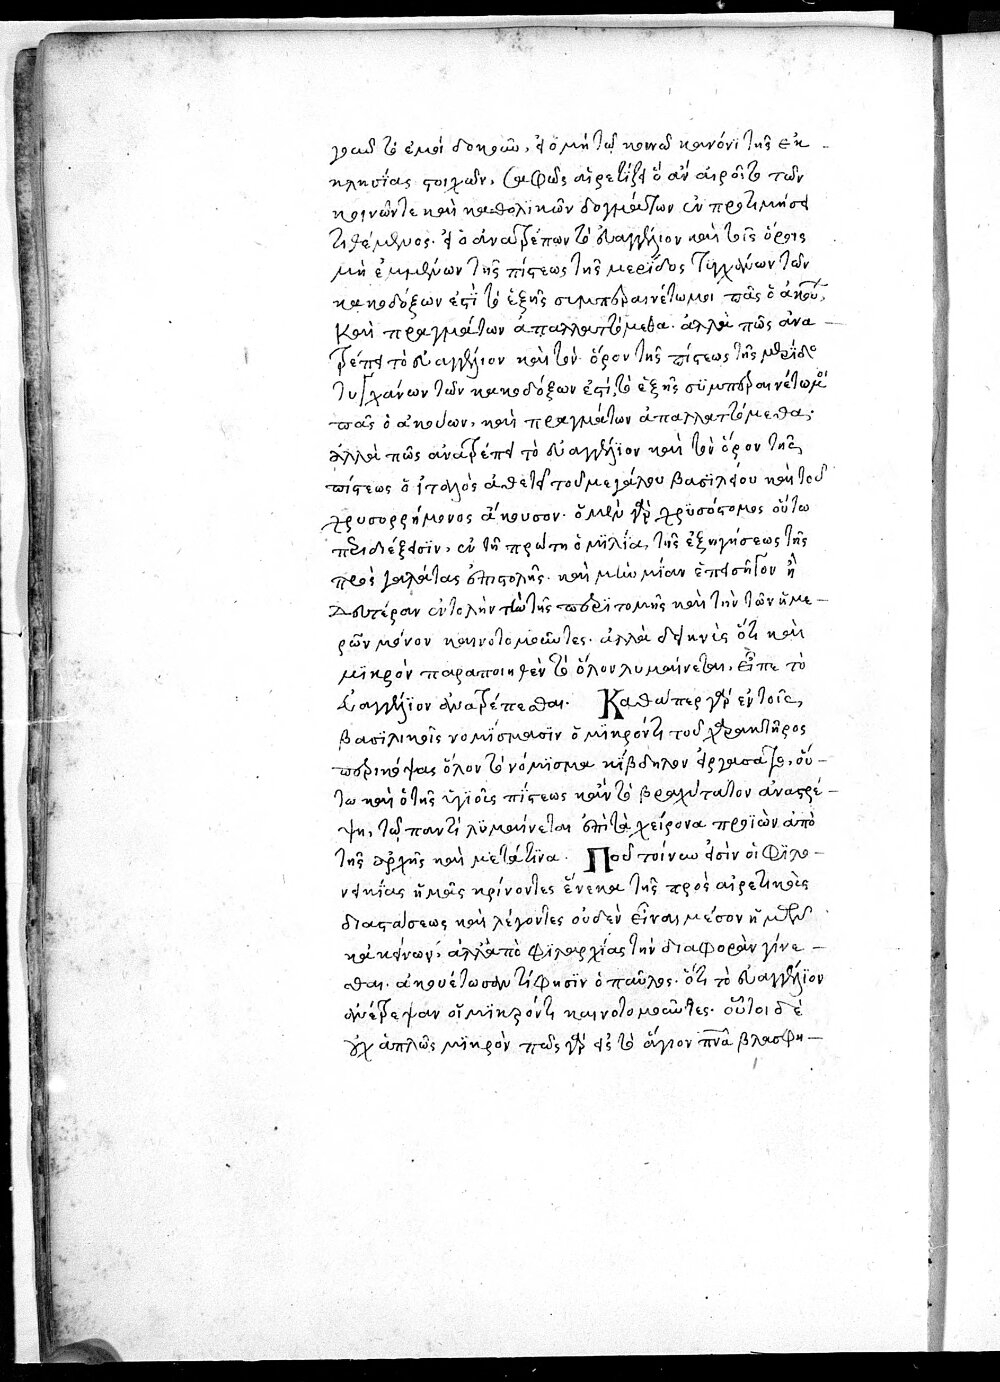 γουν τὸ ἐμοὶ δοκοῦν, εἰ ὁ μὴ τῷ κοινῷ κανόνι τῆς ἐκ-
κλησίας στοιχῶν, σαφῶς αἱρετίζει ὁ ἂν αἱροῖτο τῶν
κοινῶν τε καὶ καθολικῶν δογμάτων ἐν προτιμήσει
τιθέμενος. εἰ ὁ ἀνατρέπων τὸ εὐαγγέλιον καὶ τοῖς ὅροις
μὴ ἐμμένων τῆς πίστεως τῆς μερίδος τυγχάνων τῶν
κακοδόξων ἐστὶ τὸ ἑξῆς συμπεραινέτωμοι πᾶς ὁ ἀκούων,
Καὶ πραγμάτων ἀπαλλαττόμεθα. ἀλλὰ πῶς ἀνα-
τρέπει τὸ εὐαγγέλιον καὶ τὸν ὅρον τῆς πίστεως τῆς μερίδος
τυγχάνων τῶν κακοδόξων ἐστί, τὸ ἑξῆς συμπεραινέτω μοι
πᾶς ὁ ἀκούων, καὶ πραγμάτων ἀπαλλαττόμεθα.
ἀλλὰ πῶς ἀνατρέπει τὸ εὐαγγέλιον καὶ τὸν ὅρον τῆς
πίστεως ὁ ἰταλὸς ἀθετεῖ τοῦ μεγάλου βασιλείου καὶ τοῦ
χρυσορρήμονος ἄκουσον. ὁ μὲν γὰρ χρυσόστομος οὕτω
διέξεισιν, ἐν τῇ πρώτῃ ὁμιλίᾳ, τῆς ἐξηγήσεως τῆς
πρὸς γαλάτας ἐπιστολῆς. καὶ μὴν μίαν ἐπεισῆγον ἢ
δευτέραν ἐντολὴν τὼ τῆς περιτομῆς καὶ τὴν τῶν ἡμε-
ρῶν μόνον καινοτομοῦντες. ἀλλὰ δεικνὺς ὅτι καὶ
μικρὸν παραποιηθὲν τὸ ὅλον λυμαίνεται, εἶπε τὸ
εὐαγγέλιον ἀνατρέπεσθαι. Καθάπερ γὰρ ἐν τοῖς
βασιλικοῖς νομίσμασιν ὁ μικρόν τι τοῦ χαρακτῆρος
περικόψας ὅλον τὸ νόμισμα κίβδηλον εἰργάσατο, οὕ-
τω καὶ ὁ τῆς ὑγιοῦς πίστεως κἂν τὸ βραχύτατον ἀνατρέ-
ψῃ, τῷ παντὶ λυμαίνεται ἐπὶ τὰ χείρονα προϊὼν ἀπὸ
τῆς ἀρχῆς καὶ μετά τινα. Ποῦ τοίνυν εἰσὶν οἱ φιλο-
νεικίας ἡμᾶς κρίνοντες ἕνεκα τῆς πρὸς αἱρετικοὺς
διαστάσεως καὶ λέγοντες οὐδὲν εἶναι μέσον ἡμῶν
κἀκείνων, ἀλλ' ἀπὸ φιλαρχίας τὴν διαφορὰν γίνε-
σθαι. ἀκουέτωσαν τί φησιν ὁ παῦλος. ὅτι τὸ εὐαγγέλιον
ἀνέτρεψαν οἱ μικρόν τι καινοτομοῦντες. οὗτοι δὲ
οὐχ ἁπλῶς μικρὸν πῶς γὰρ εἰς τὸ ἅγιον πνα βλασφη-